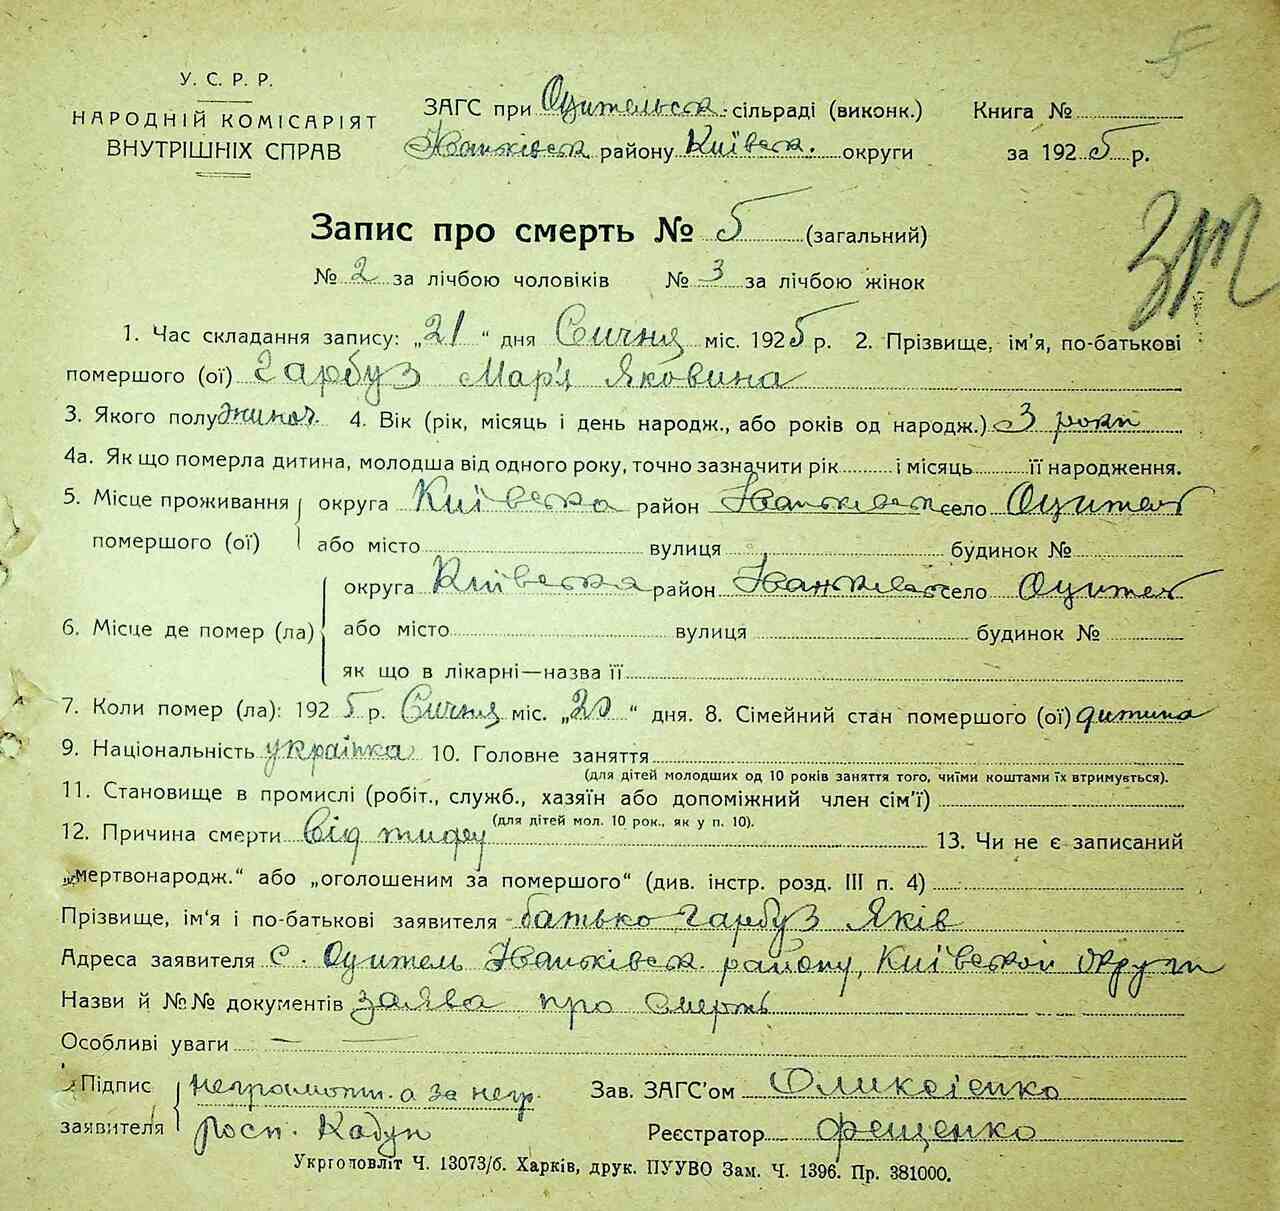 5
У. С. Р. Р.
НАРОДНІЙ КОМІСАРІЯТ
ВНУТРІШНІХ СПРАВ
ЗАГС при Оцительськ. сільраді (виконк.)
Іванківськ району Київськ. округи
Книга №
за 1925 р.
Запис про смерть № 5 (загальний)
№ 2 за лічбою чоловіків № 3 за лічбою жінок
1. Час складання запису: „21“ дня Сичня міс. 1925 р. 2. Прізвище, ім'я, по-батькові
помершого (ої) Гарбуз Мар'я Яковина
3. Якого полу жиноч. 4. Вік (рік, місяць і день народж., або років од народж.) 3 роки
4а. Як що померла дитина, молодша від одного року, точно зазначити рік і місяць її народження.
5. Місце проживання помершого (ої) округа Київська район Іванківськ село Оцитель
або місто вулиця будинок №
6. Місце де помер (ла) округа Київська район Іванківськ село Оцитель
або місто вулиця будинок №
як що в лікарні—назва її
7. Коли помер (ла): 1925 р. Сичня міс. „20“ дня. 8. Сімейний стан помершого (ої) дитина
9. Національність українка 10. Головне заняття
(для дітей молодших од 10 років заняття того, чиїми коштами їх втримується).
11. Становище в промислі (робіт., служб., хазяїн або допоміжний член сім'ї)
(для дітей мол. 10 рок., як у п. 10).
12. Причина смерти від тифу 13. Чи не є записаний
„мертвонародж.“ або „оголошеним за помершого“ (див. інстр. розд. III п. 4)
Прізвище, ім'я і по-батькові заявителя батько Гарбуз Яків
Адреса заявителя С. Оцитель Іванківськ. району, Київської округи
Назви й №№ документів заява про смерть
Особливі уваги — —
Підпис заявителя неграмотн. а за негр.
росп. Кадун
Зав. ЗАГС'ом Оликсієнко
Реєстратор Фещенко
Укрголовліт Ч. 13073/б. Харків, друк. ПУУВО Зам. Ч. 1396. Пр. 381000.